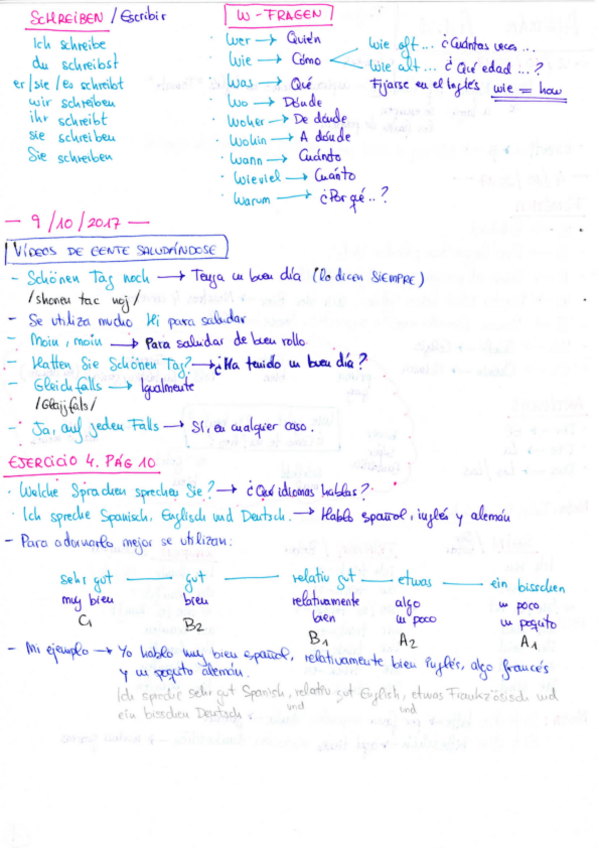 SCHREIBEN / Escribir
Ich schreibe
du schreibst
er/sie/es schreibt
wir schreiben
ihr schreibt
sie schreiben
Sie schreiben
W-FRAGEN
· Wer → Quién
· Wie → Cómo
Wie oft... ¿Cuántas veces...
Wie alt... ¿Qué edad...?
Fijarse en el Inglés wie = how
· Was → Qué
· Wo → Dónde
· Woher → De dónde
· Wohin → A dónde
· Wann → Cuánto
· Wieviel → Cuánto
· Warum → ¿Por qué..?
— 9/10/2017 —
VÍDEOS DE GENTE SALUDÁNDOSE
- Schönen Tag noch → Tenga un buen día (lo dicen SIEMPRE)
/shonen tac noj/
- Se utiliza mucho Hi para saludar
- Moin, moin → Para saludar de buen rollo
- Hatten Sie Schönen Tag? → ¿Ha tenido un buen día?
- Gleich falls → Igualmente
/Glaijfals/
- Ja, auf jeden Falls → Sí, en cualquier caso.
EJERCICIO 4. PÁG 10
· Welche Sprachen sprechen Sie? → ¿Qué idiomas hablas?
· Ich spreche Spanisch, Englisch und Deutsch. → Hablo español, inglés y alemán
- Para adornarlo mejor se utilizan:
sehr gut — gut — relativ gut — etwas — ein bisschen
muy bien bien relativamente bien algo un poco un poco un poquito
C1 B2 B1 A2 A1
- Mi ejemplo → Yo hablo muy bien español, relativamente bien inglés, algo francés
y un poquito alemán.
Ich spreche sehr gut Spanish, relativ gut English, etwas Frankzösisch und
ein bisschen Deutsch.
und
und